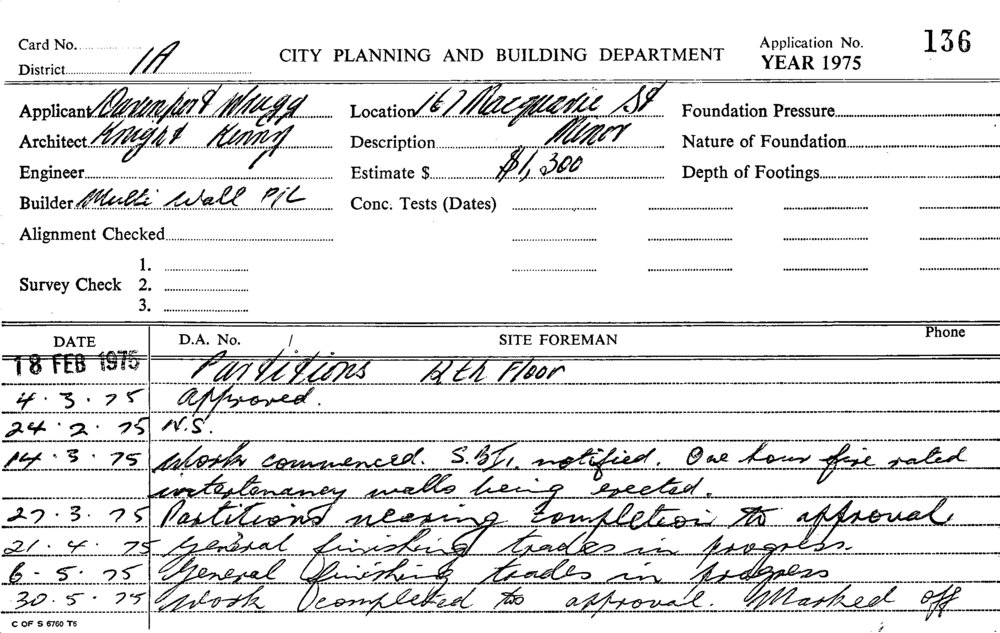 Card No.
CITY PLANNING AND BUILDING DEPARTMENT
Application No. 136
District 1A
YEAR 1975
Applicant Davenport Location 167 Macquarie St Foundation Pressure
Architect Knight Kenny Description Minor Nature of Foundation
Engineer Estimate $ $1,300 Depth of Footings
Builder Multi Wall P/L Conc. Tests (Dates)
Alignment Checked
1.
Survey Check 2.
3.
DATE D.A. No. / SITE FOREMAN Phone
18 FEB 1975 Partitions 12th Floor
4.3.75 Approved.
24.2.75 N.S.
14.3.75 Work commenced. S.B.I. notified. One hour fire rated
intertenancy walls being erected.
27.3.75 Partitions nearing completion to approval
21.4.75 General finishing trades in progress.
6.5.75 General finishing trades in progress
30.5.75 Work completed to approval. Marked off
C OF S 6760 T6